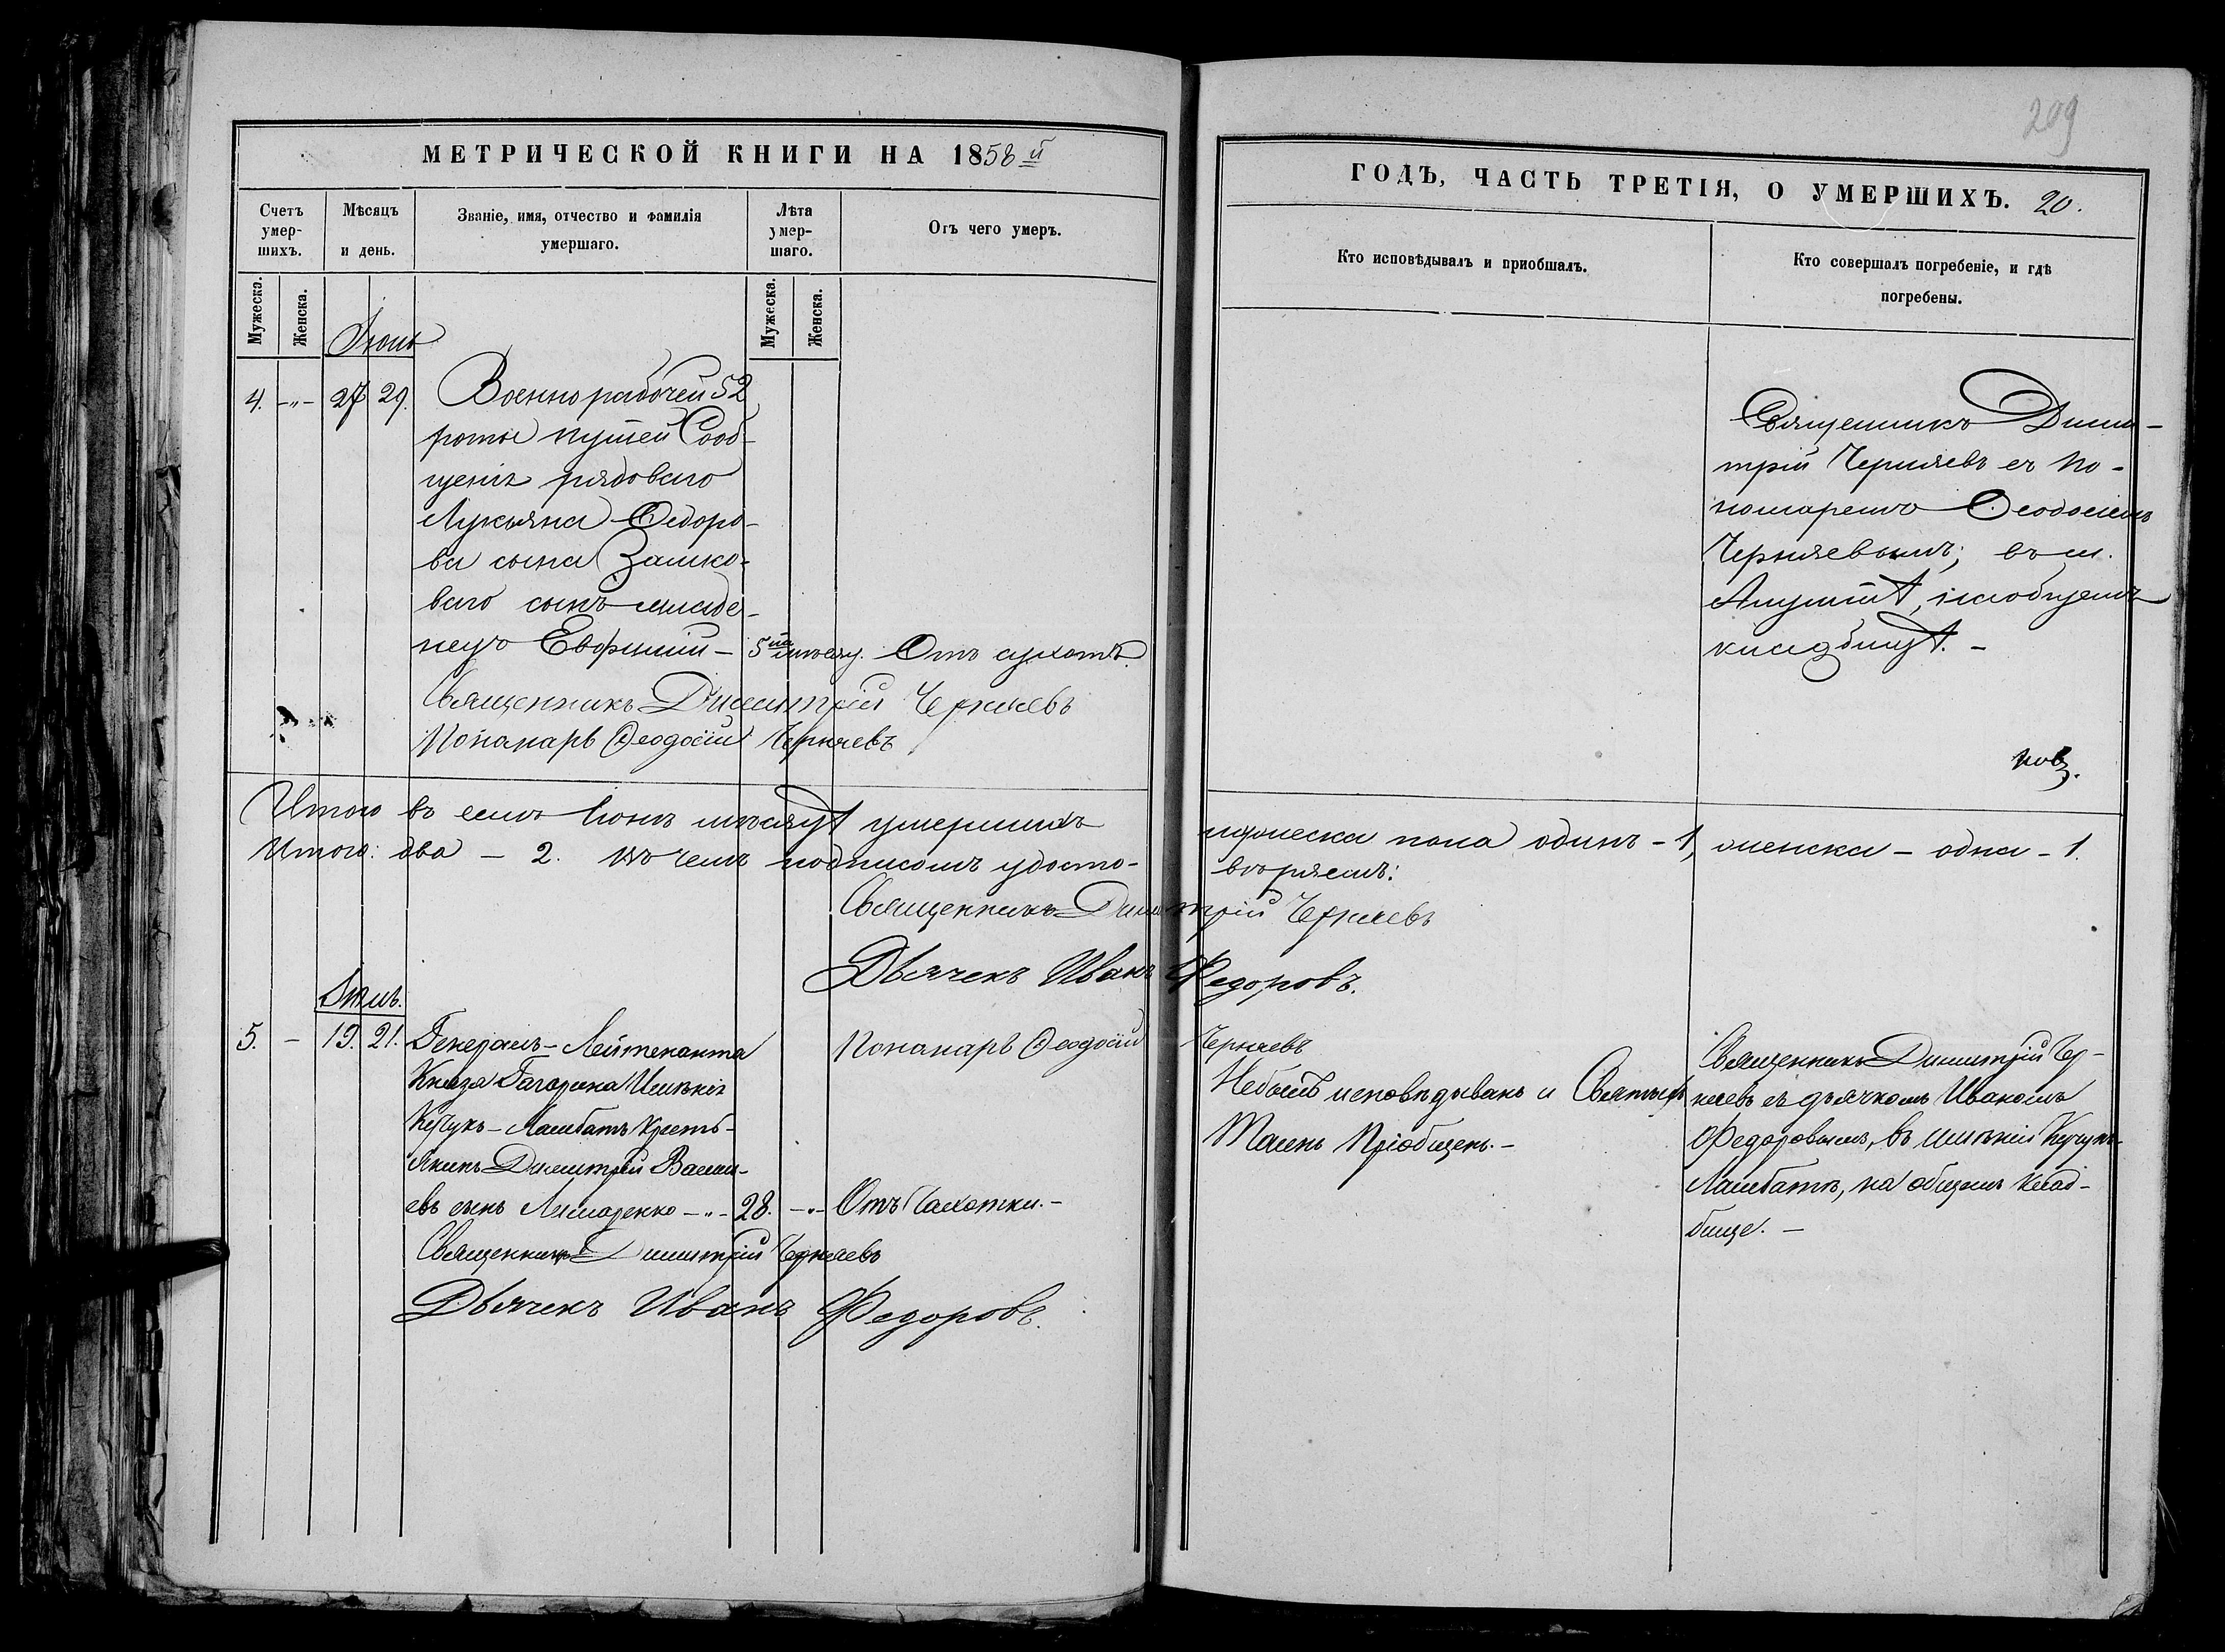 209
МЕТРИЧЕСКОЙ КНИГИ НА 1858й
ГОДЪ, ЧАСТЬ ТРЕТІЯ, О УМЕРШИХЪ. 20.
Счетъ умер-шихъ.
Мѣсяцъ и день.
Званіе, имя, отчество и фамилія умершаго.
Лѣта умер-шаго.
Отъ чего умеръ.
Кто исповѣдывалъ и пріобщалъ.
Кто совершалъ погребеніе, и гдѣ погребены.
Мужеска. Женска.
Мужеска. Женска.
Іюнь
4. -„- 27 29. Военнорабочей 52
роты путей Сооб-
щенія рядоваго
Лукьяна Ѳедоро-
ва сына
ваго сынъ младе-
нецъ Евфимій - 5ти мѣсяц. Отъ сухотъ.
Священникъ Дими-
трій Черняевъ съ По-
номаремъ Ѳеодосіемъ
Черняевымъ; въ м.
на общемъ
кладбищѣ. -
Священникъ Димитрій Черняевъ
Понамарь Ѳеодосій Черняевъ
Итого въ семъ Іюнѣ мѣсяцѣ умершихъ мужеска пола одинъ - 1, женска - одна - 1.
Итого: два - 2. Въ чемъ подписомъ удосто-вѣряемъ:
Священникъ Димитрій Черняевъ
Дьячекъ Иванъ Федоровъ.
Понамарь Ѳеодосій Черняевъ
Іюль.
5. - 19. 21. Генералъ-Лейтенанта
Князя Гагарина Имѣнія
Кучукъ-Ламбатъ Кресть-
янинъ Димитрій Васил-
евъ сынъ Лимаренко -„- 28. -„- Отъ Чахотки. -
Небылъ исповѣдыванъ и Святыхъ
Таинъ Пріобщенъ. -
Священникъ Димитрій Чер-
няевъ съ дьячкомъ Иваномъ
Федоровымъ, въ имѣніи Кучукъ-
Ламбатъ, на общемъ клад-
бище. -
Священникъ Димитрій Черняевъ
Дьячекъ Иванъ Федоровъ.